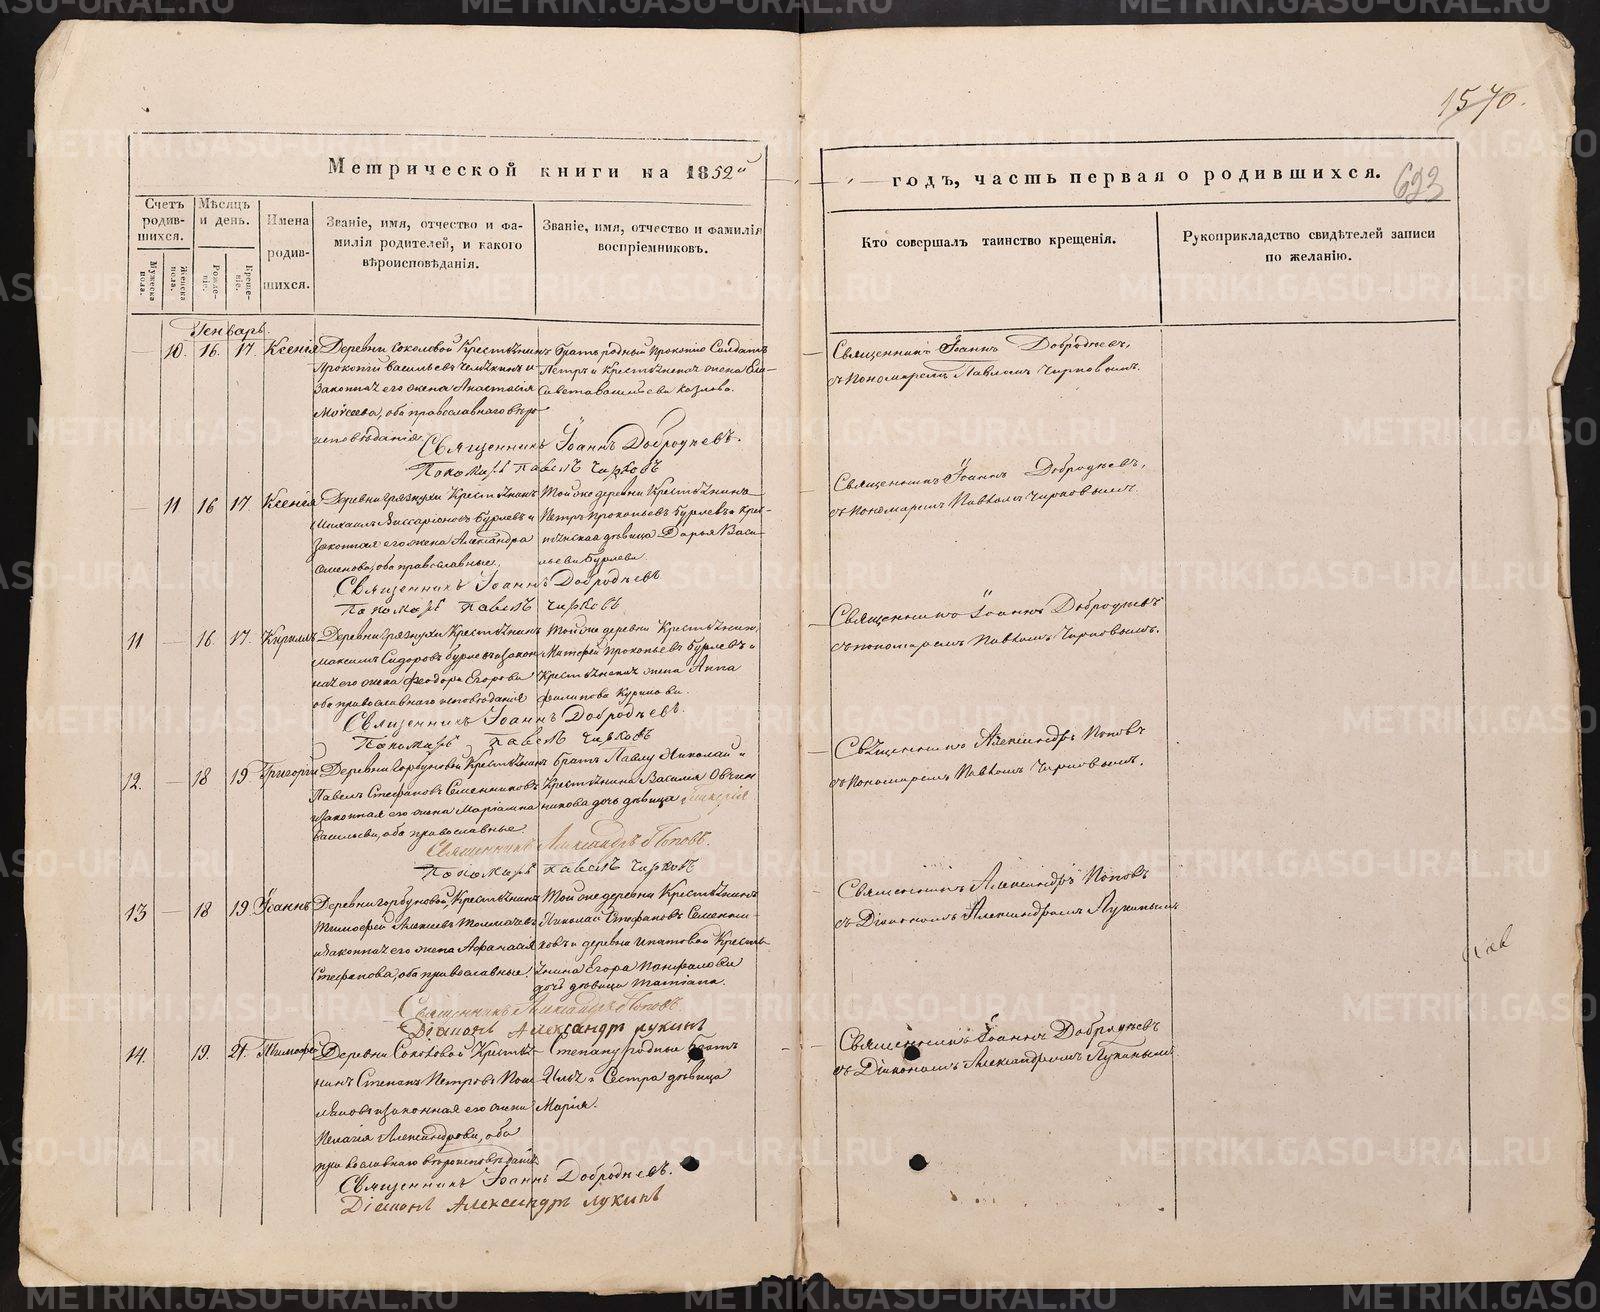 1570.
693
Метрической книги на 1852й
годъ, часть первая о родившихся.
Счетъ родившихся.
Мѣсяцъ и день.
Имена родившихся.
Званіе, имя, отчество и фамилія родителей, и какого вѣроисповѣданія.
Званіе, имя, отчество и фамилія воспріемниковъ.
Кто совершалъ таинство крещенія.
Рукоприкладство свидѣтелей записи по желанію.
Мужеска пола.
Женска пола.
Рожденіе.
Крещеніе.
Генварь.
10. 16. 17. Ксенія
Деревни Соколовой Крестьянинъ
Прокопій Васильевъ и
законная его жена Анастасія
Моисеева, оба православнаго вѣро
исповѣданія.
братъ родный Прокопію Солдатъ
Петръ и Крестьянская жена Ели
савета Васильева Козлова.
Священникъ Іоаннъ Добродѣевъ,
съ Пономаремъ Павломъ Чирковымъ.
Священникъ Іоаннъ Добродѣевъ.
Пономарь Павелъ Чирковъ
11 16 17 Ксенія
Деревни Грязнухи Крестьянинъ
Михаилъ Виссаріоновъ Бурлевъ и
законная его жена Александра
Семенова, оба православные.
Той же деревни Крестьянинъ
Петръ Прокопьевъ Бурлевъ и крес-
тьянская дѣвица Дарья Васи-
льева Бурлева.
Священникъ Іоаннъ Добродѣевъ,
съ Пономаремъ Павломъ Чирковымъ.
Священникъ Іоаннъ Добродѣевъ
Пономарь Павелъ Чирковъ
11 — 16 17. Кириллъ
Деревни Грязнухи Крестьянинъ
Максимъ Сидоровъ Бурлевъ и закон
ная его жена Феодора Егорова
оба православнаго исповѣданія
Той же деревни Крестьянинъ
Матфей Прокопьевъ Бурлевъ и
Крестьянская жена Анна
Филипова
Священникъ Іоаннъ Добродѣевъ
съ пономаремъ Павломъ Чирковымъ.
Священникъ Іоаннъ Добродѣевъ.
Пономарь Павелъ Чирковъ
12. — 18 19 Григорій
Деревни Горбуновой Крестьянинъ
Павелъ Стефановъ Семенниковъ
и законная его жена Маріамна
Васильева, оба православные.
братъ Павлу Николай и
Крестьянина Василія Овчин
никова дочь дѣвица
Священникъ Александръ Поповъ
съ Пономаремъ Павломъ Чирковымъ.
Священникъ Александръ Поповъ.
Пономарь Павелъ Чирковъ
13 — 18 19 Іоаннъ
Деревни Горбуновой, Крестьянинъ
Тимофей Алексѣевъ Толмачевъ
и законная его жена Афанасія
Стефанова, оба православные.
Той же деревни Крестьянинъ
Николай Стефановъ Семенни-
ковъ и деревни Ипатовой Кресть-
янина Егора Панфилова
дочь дѣвица Татіана.
Священникъ Александръ Поповъ
съ Діакономъ Александромъ Лукинымъ
Священникъ Александръ Поповъ
Діаконъ Александръ Лукинъ
14. 19. 21. Тимофей
Деревни Соколовой Крестья-
нинъ Степанъ Петровъ
и законная его жена
Пелагія Александрова, оба
православнаго вѣроисповѣданія
Степану родные братъ
Илья и Сестра дѣвица
Марія.
Священникъ Іоаннъ Добродѣевъ
съ Діакономъ Александромъ Лукинымъ
Священникъ Іоаннъ Добродѣевъ.
Діаконъ Александръ Лукинъ
METRIKI.GASO-URAL.RU